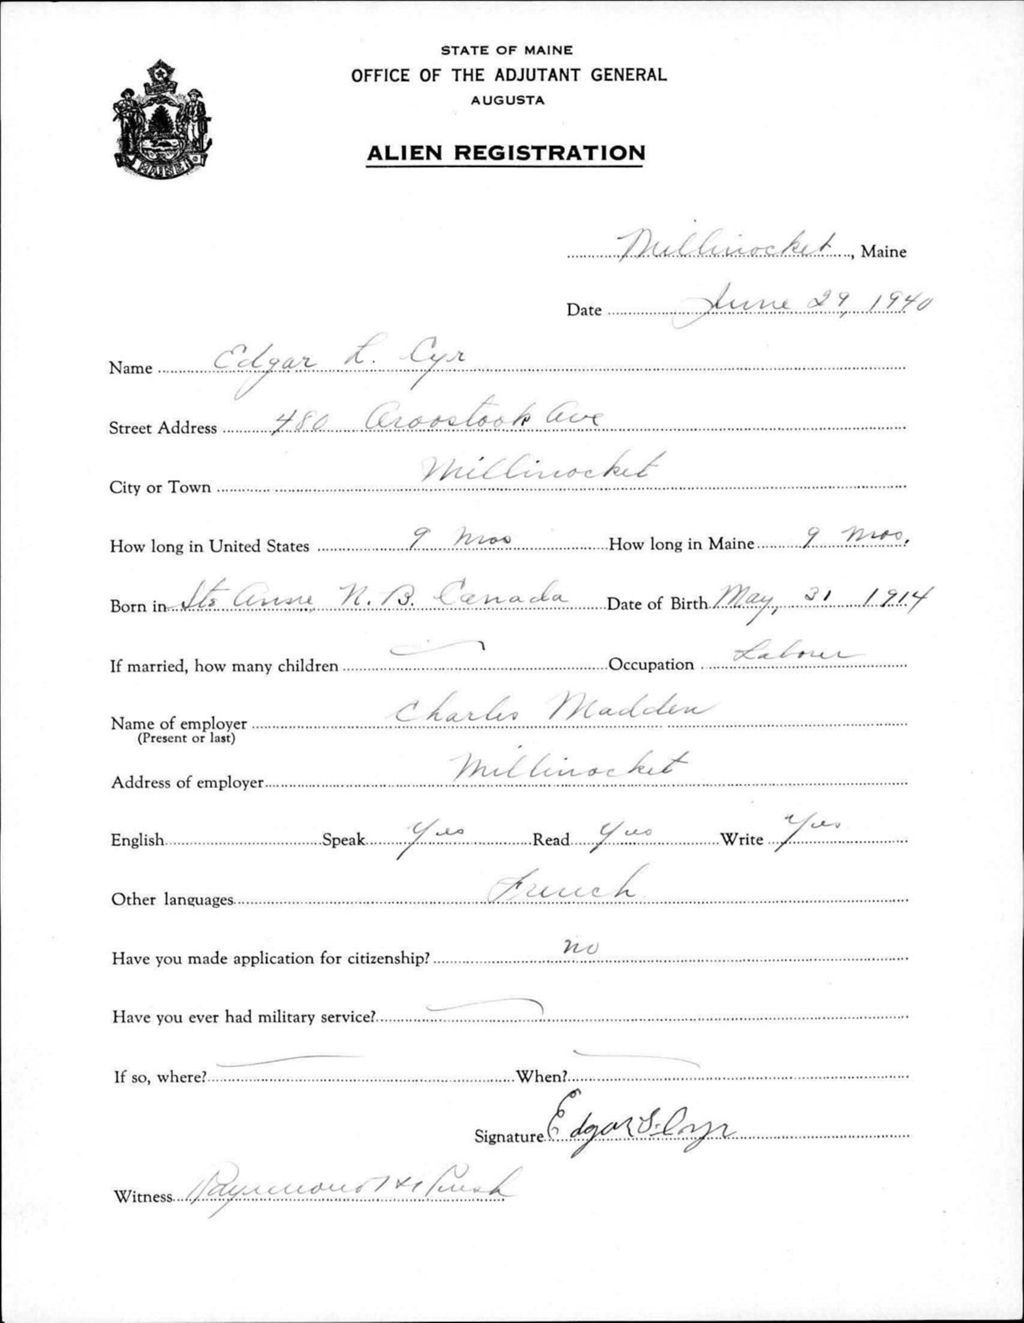 STATE OF MAINE
OFFICE OF THE ADJUTANT GENERAL
AUGUSTA
ALIEN REGISTRATION
Millinocket, Maine
Date June 29, 1940
Name Edgar L. Cyr
Street Address 480 Aroostook Ave
City or Town Millinocket
How long in United States 9 mos How long in Maine 9 mos.
Born in Ste Anne N.B. Canada Date of Birth May, 31 1914
If married, how many children — Occupation Laborer
Name of employer Charles Madden
(Present or last)
Address of employer Millinocket
English Speak Yes Read Yes Write Yes
Other languages French
Have you made application for citizenship? no
Have you ever had military service? —
If so, where? — When? —
Signature Edgar L. Cyr
Witness Raymond H.